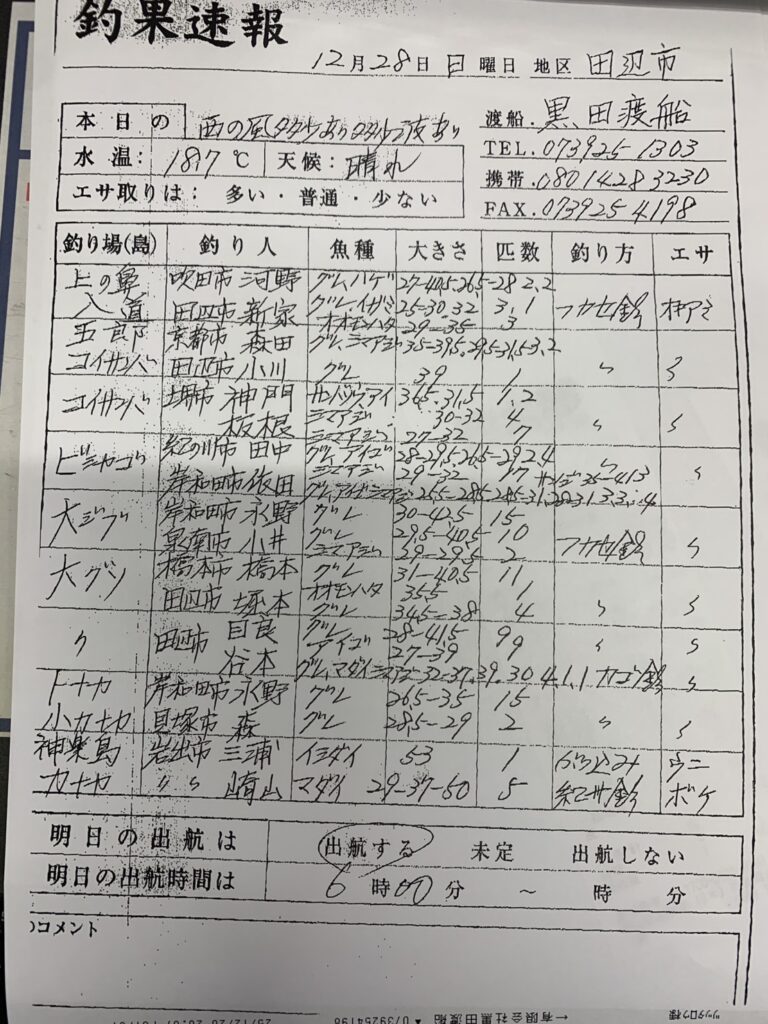 釣果速報
12月28日 日 曜日 地区 田辺市
本日の 西の風多少あり多少波あり
渡船. 黒田渡船
水温: 18.7℃ 天候: 晴れ
TEL. 073925 1303
エサ取りは: 多い・普通・少ない
携帯. 080 1428 3230
FAX. 073925 4198
釣り場(島) 釣り人 魚種 大きさ 匹数 釣り方 エサ
上の鼻 吹田市 河野 グレ, ハゲ 27-40,5.26,5-28 2,2
入道 田辺市 新家 グレ, イガミ 25-30.32 3,1 フカセ釣 オキアミ
オオモンハタ 29-35 3
五郎 京都市 森田 グレ, シマアジ 35-39,5.29,5-31,5 3,2
コイサンバ 田辺市 小川 グレ 39 1 〃 〃
コイサンバ 堺市 神門 アイ 36,5.31,5 1,2
板根 シマアジ 30-32 4 〃 〃
シマアジ 27-32 7
ビシャゴ 紀の川市 田中 グレ アイゴ 28-29,5.26,5-29 2,4 〃
シマアジ 29-32 17 〃
岸和田市 依田 グレ, アイゴ, シマアジ
大ジブ 岸和田市 永野 グレ 30-42,5 15
泉南市 小井 グレ 29,5-40,5 10 フカセ釣 〃
シマアジ 29-29,5 2
大グソ 橋本市 橋本 グレ 31-40,5 11
オオモンハタ 35,5 1
田辺市 坂本 グレ 34,5-38 4 〃 〃
〃 田辺市 目良 グレ 28-41,5 99
谷本 アイゴ 27-39 〃 〃
グレ, マダイ シマアジ 32-37.39.30 4.1.1 カゴ釣 〃
トナカ 岸和田市 永野 グレ 26,5-35 15
小カナカ 貝塚市 森 グレ 28,5-29 2 〃 〃
神楽島 岩出市 三浦 イシダイ 53 1 ぶっ込み ウニ
カナヤ 〃〃 崎山 マダイ 29-37-50 5 紀州釣 ボケ
明日の出航は 出航する 未定 出航しない
明日の出航時間は 6時00分 〜 時 分
のコメント
←有限会社黒田渡船 ▲ 0739254198